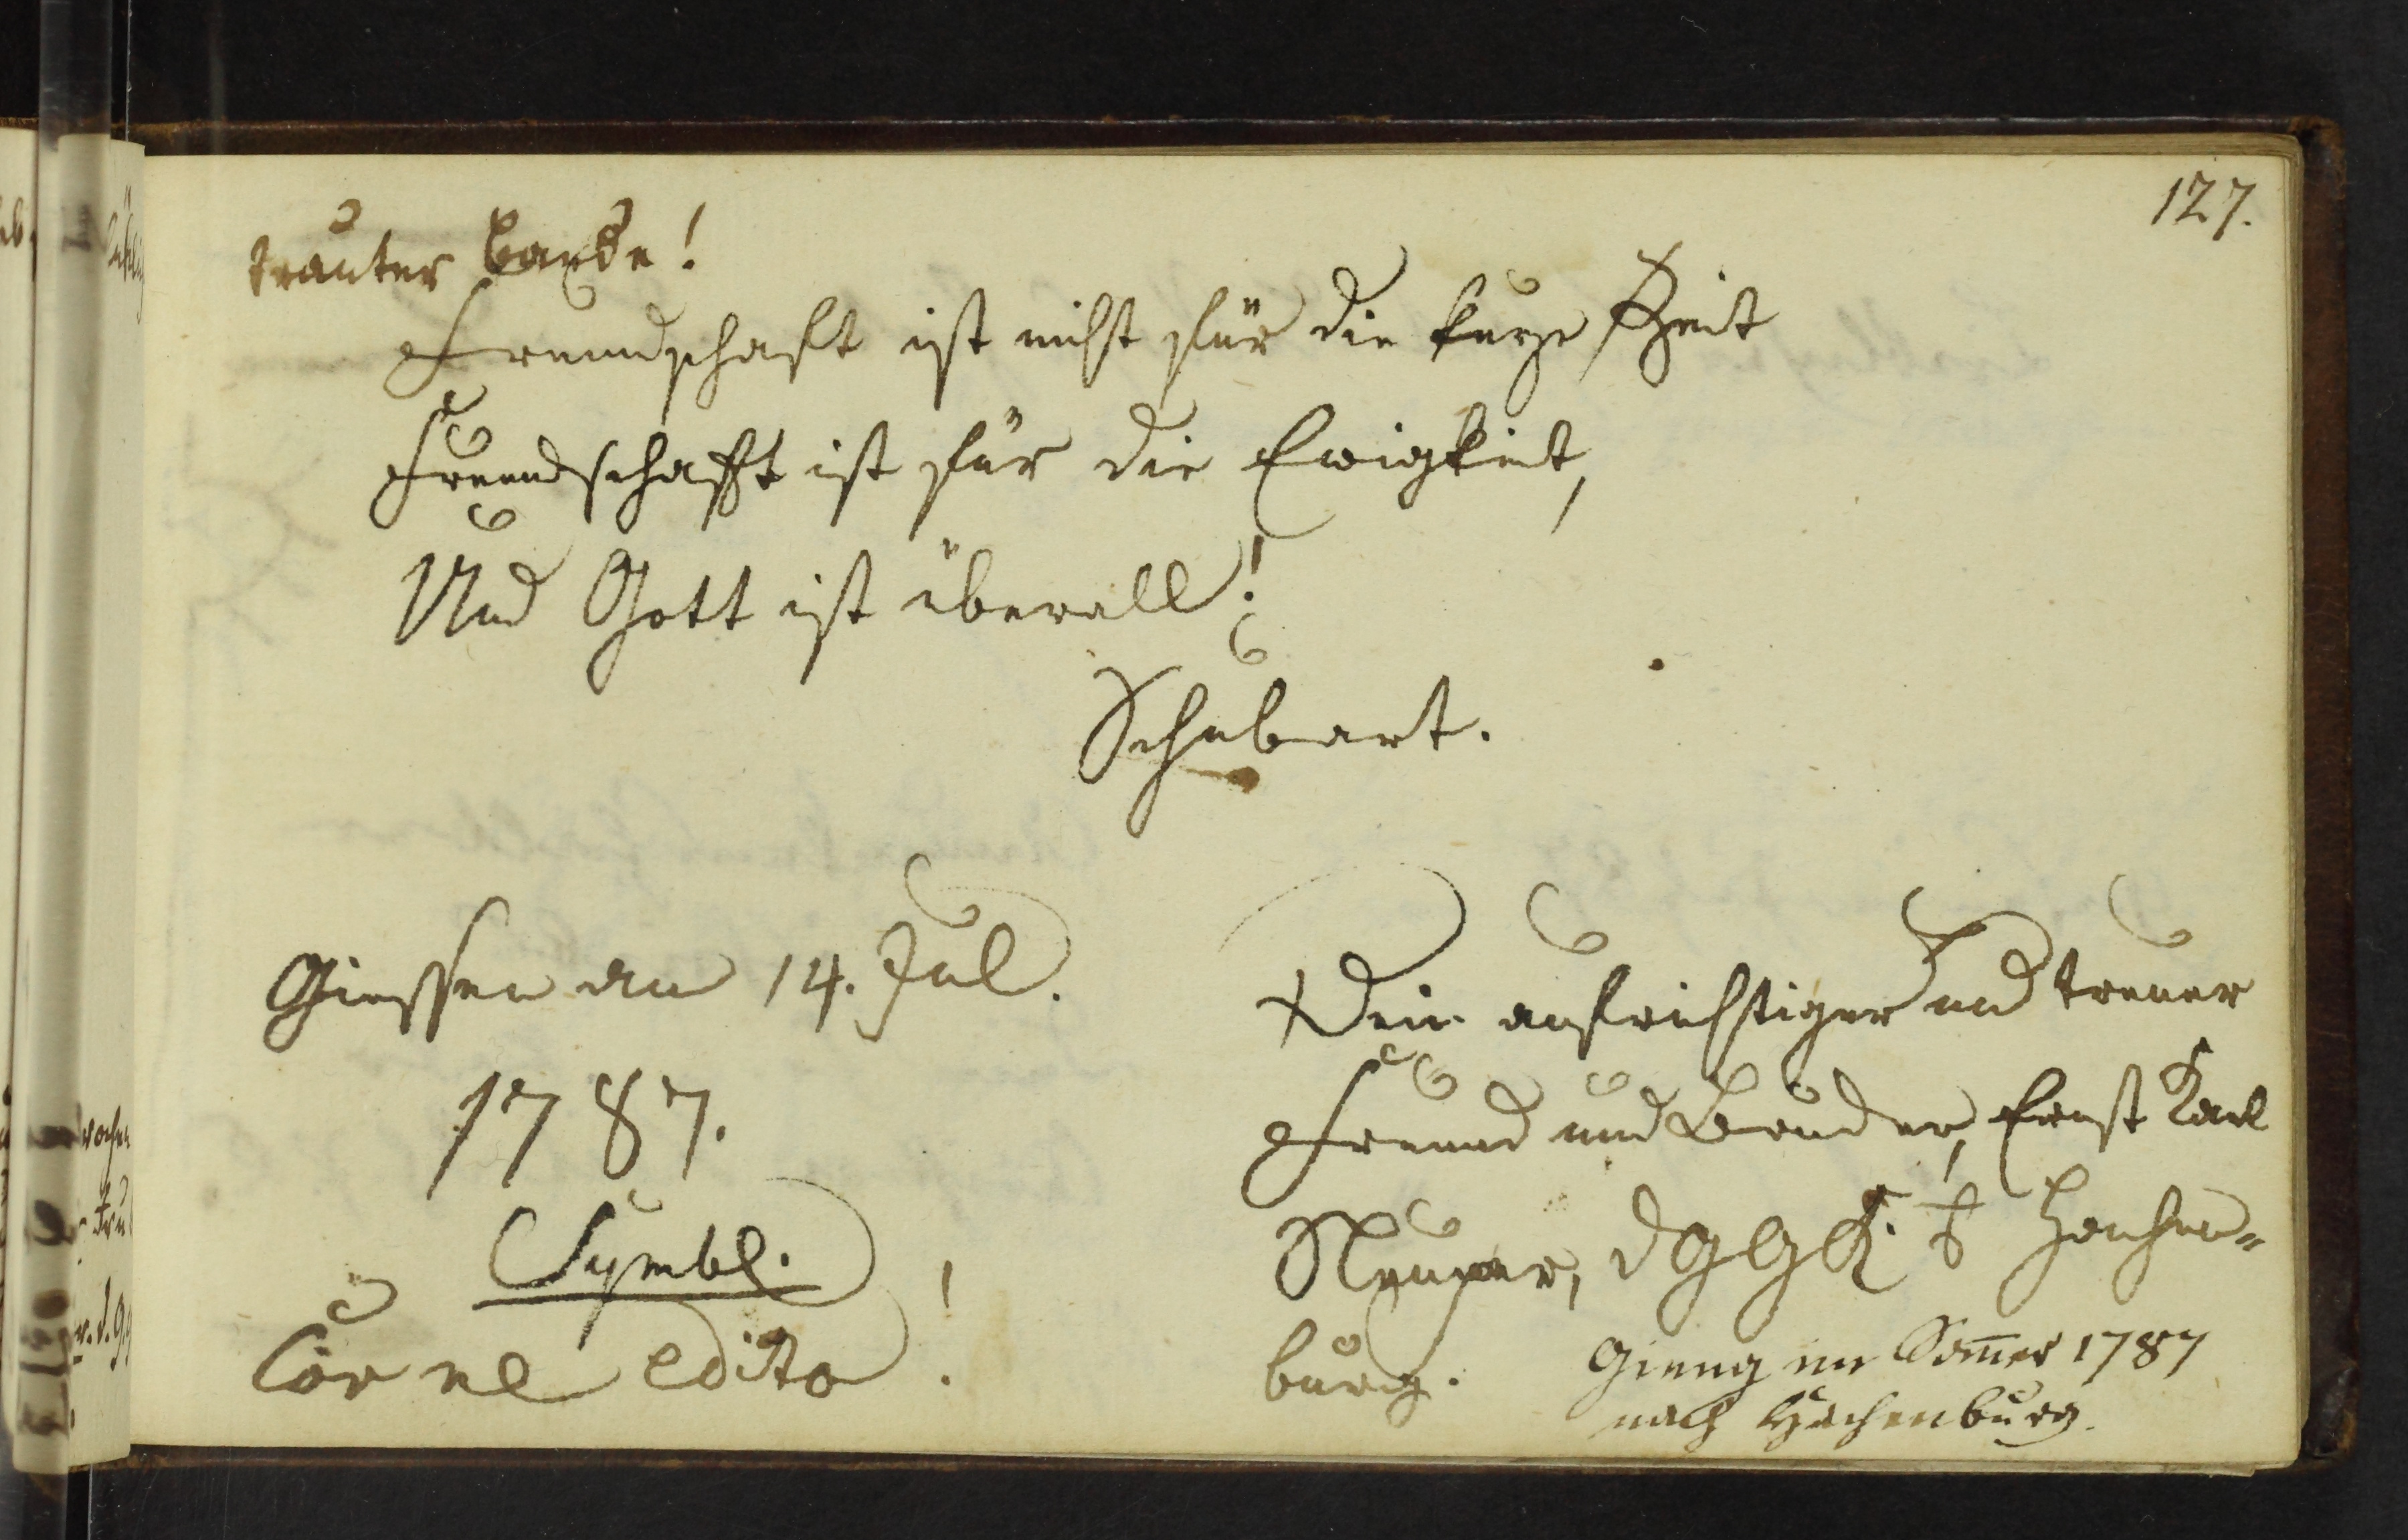 127.
trauter Barde!
Freundschaft ist nicht für die kurze Zeit
Freundschafft ist für die Ewigkeit,
Und Gott ist überall!
Schubart.
Giessen den 14. Jul.
1787.
Symbl.
Cor ne edito!
Dein aufrichtiger und treuer
Freund und Bruder, Ernst Karl
d G G K. Hachen-
burg.
Gieng im Som̅er 1787
nach Hachenburg.